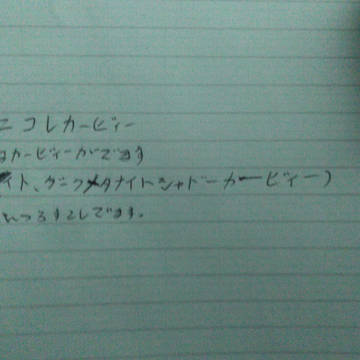 ニコレカービィー
はカービィーがでます
イト、ダークメタナイトシャドーカービィー)
もうすこしでます。